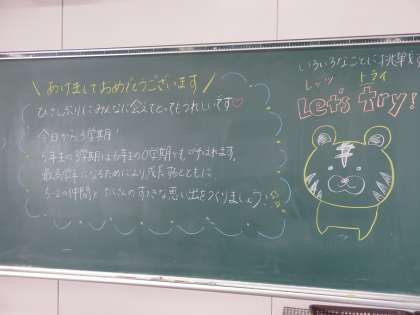 あけましておめでとうございます
ひさしぶりにみんなに会えてとってもうれしいです♡
今日から3学期！
5年生の3学期は6年生の0学期ともいわれます。
最高学年になるためにより成長するとともに、
5-2の仲間とたくさんのすてきな思い出をつくりましょう！
いろいろなことに挑戦す
レッツ トライ
Let's try!